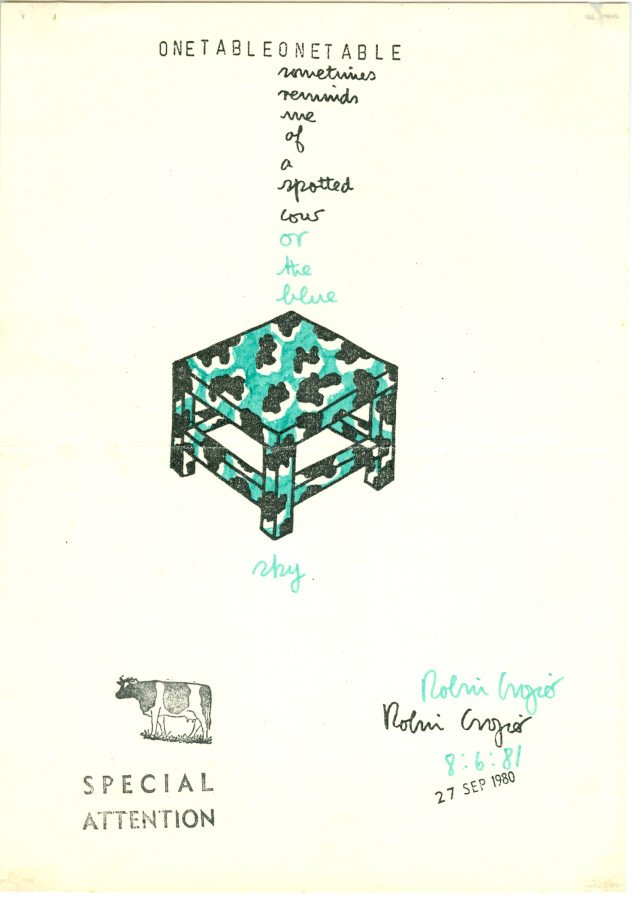 ONETABLEONETABLE
sometimes
reminds
me
of
a
spotted
cow
or
the
blue
sky
Robin Crozier
Robin Crozier
8:6:81
27 SEP 1980
SPECIAL
ATTENTION